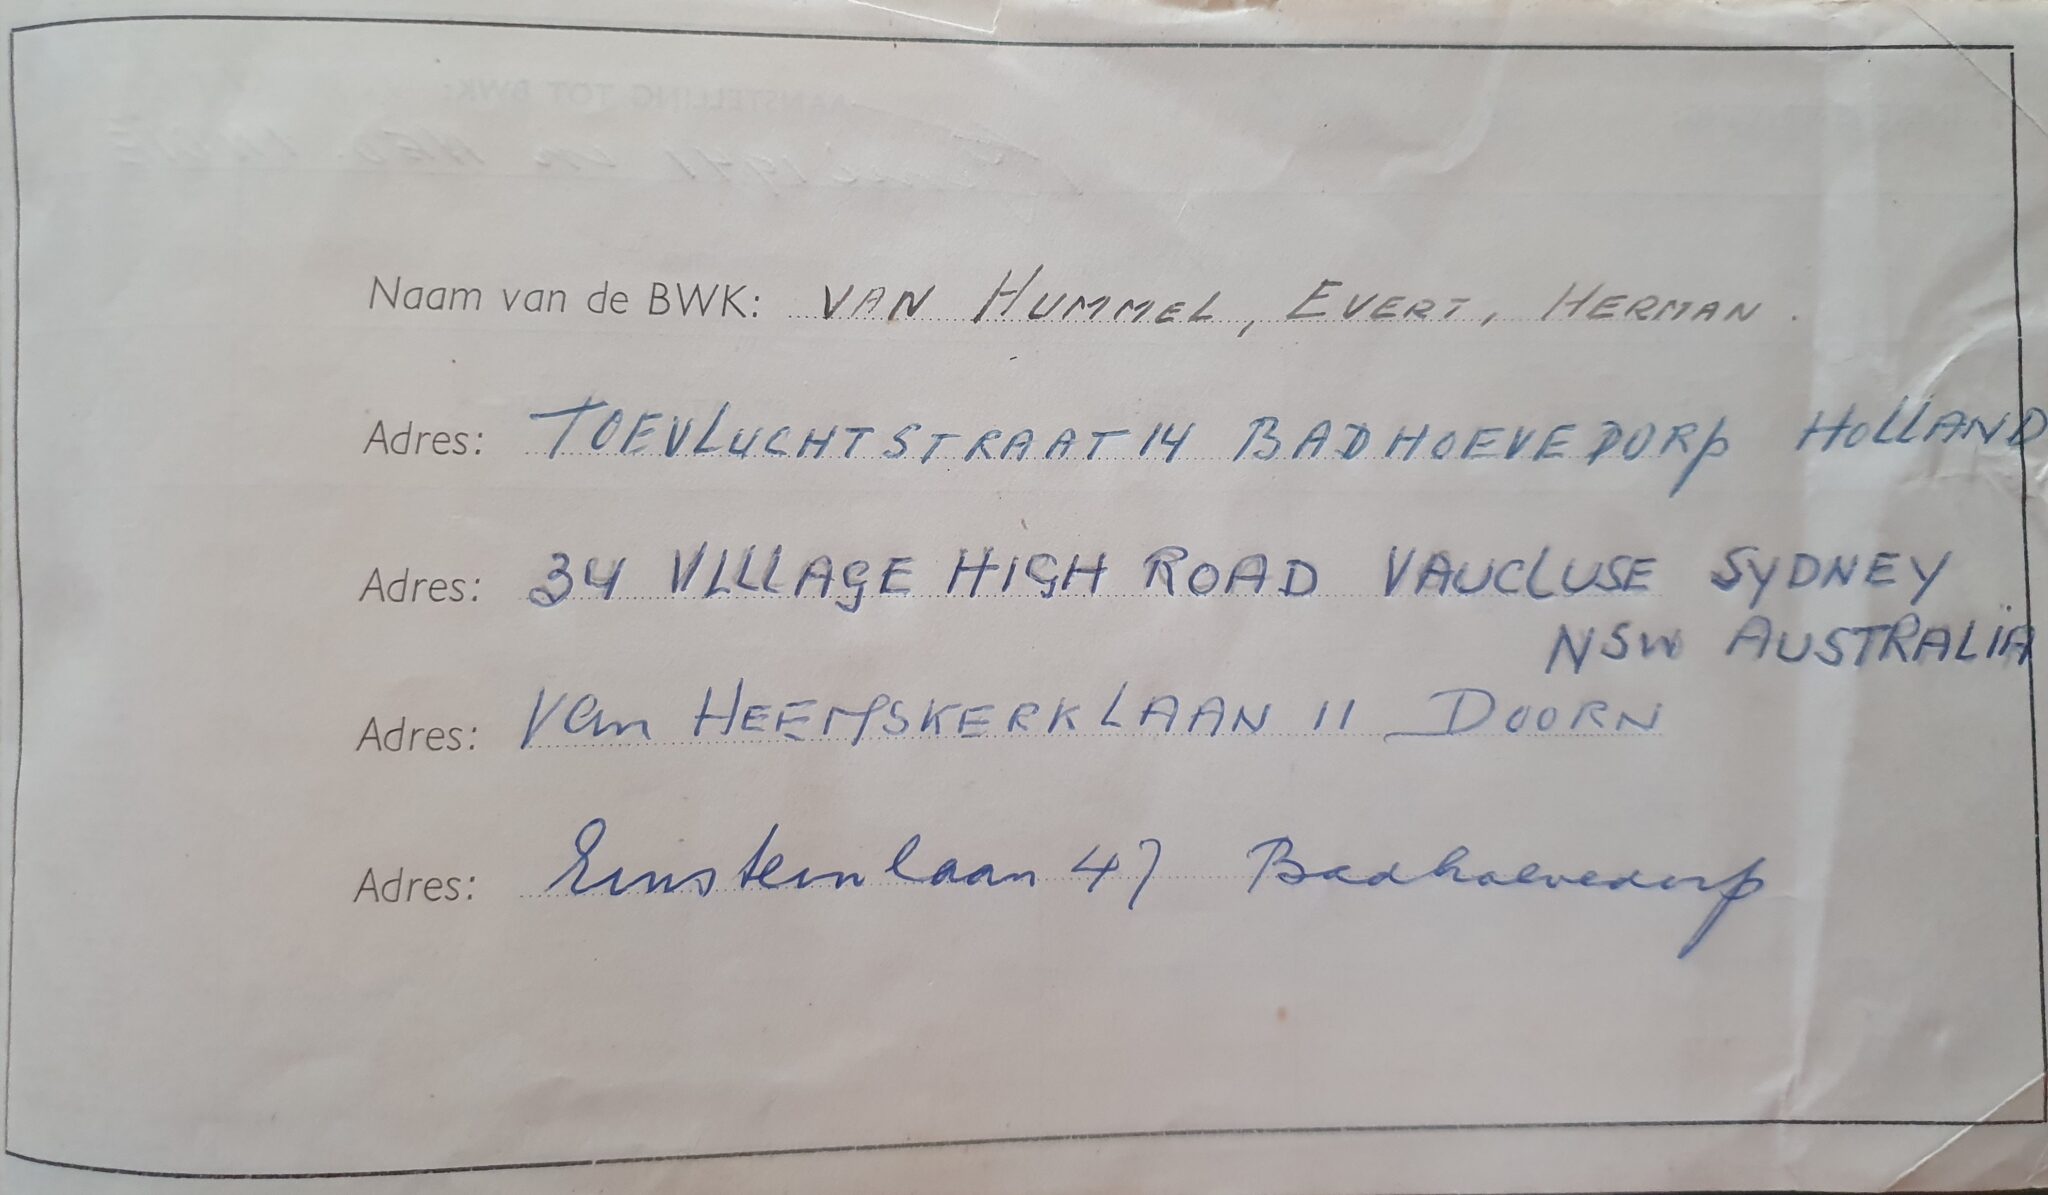 AANSTELLING TOT BWK:
1941 in NED. INDIE
Naam van de BWK: VAN HUMMEL, EVERT, HERMAN.
Adres: TOEVLUCHTSTRAAT 14 BADHOEVEDORP HOLLAND
Adres: 34 VILLAGE HIGH ROAD VAUCLUSE SYDNEY
NSW AUSTRALIA
Adres: Van HEEMSKERKLAAN 11 DOORN
Adres: Einsteinlaan 47 Badhoevedorp